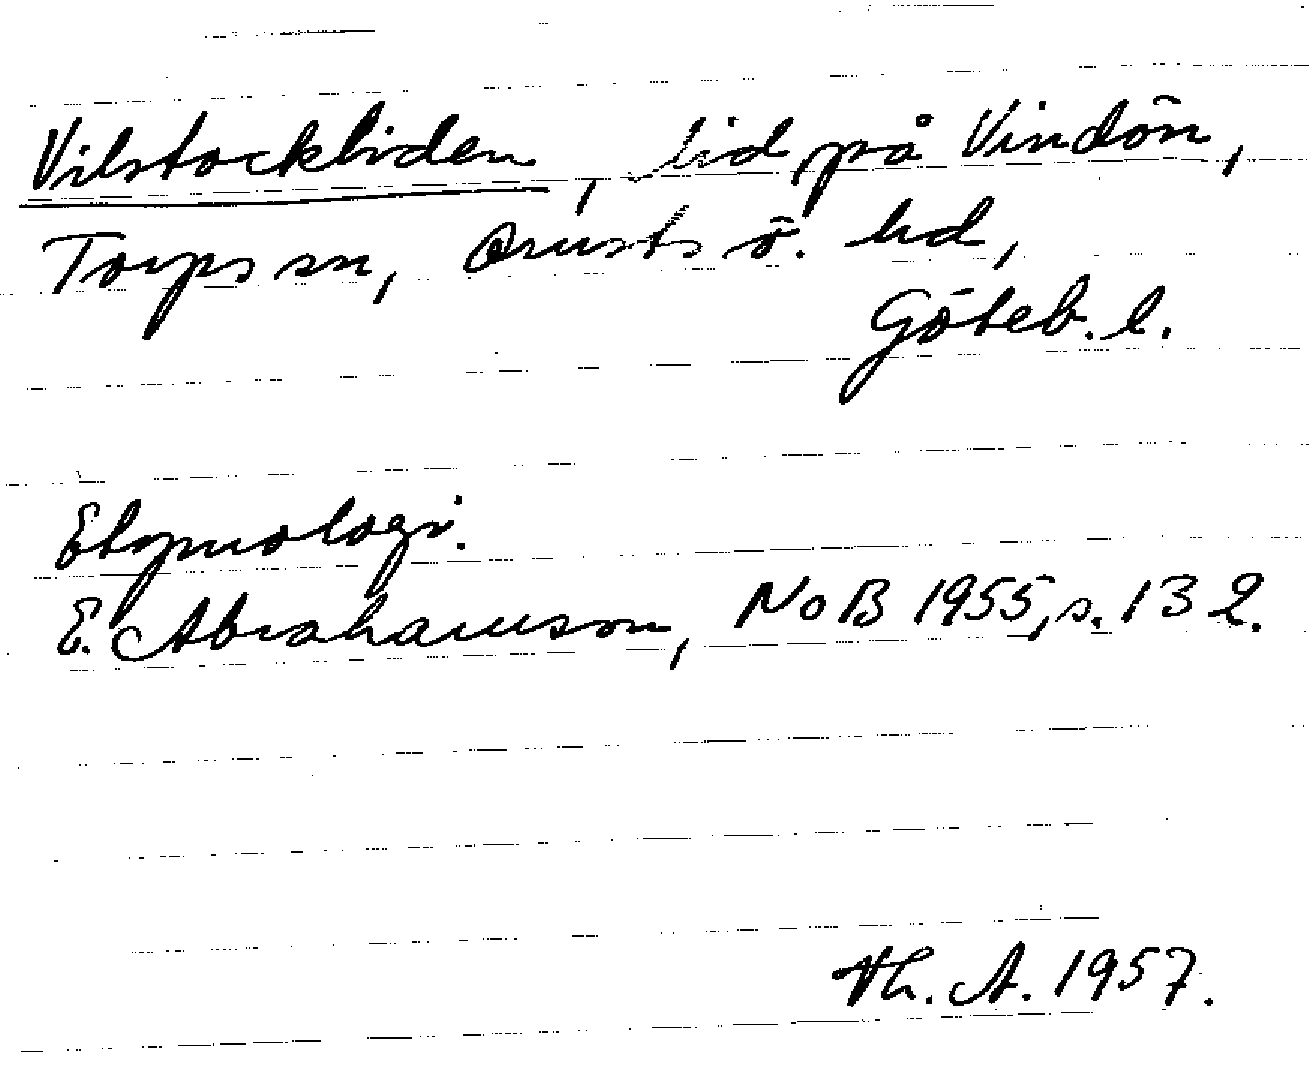 Vilstockliden, lid på Vindön,
Torps sn, Orusts ö. hd,
Göteb. l.
Etymologi.
E. Abrahamson, NoB 1955, s. 132.
Th. A. 1957.